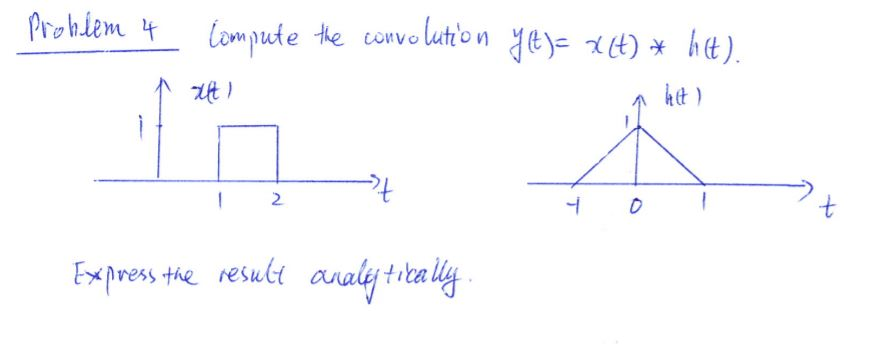 Problem 4 Compute the convolution y(t)= x(t) * h(t).
x(t)
1
1 2 t
h(t)
1
-1 0 1 t
Express the result analytically.